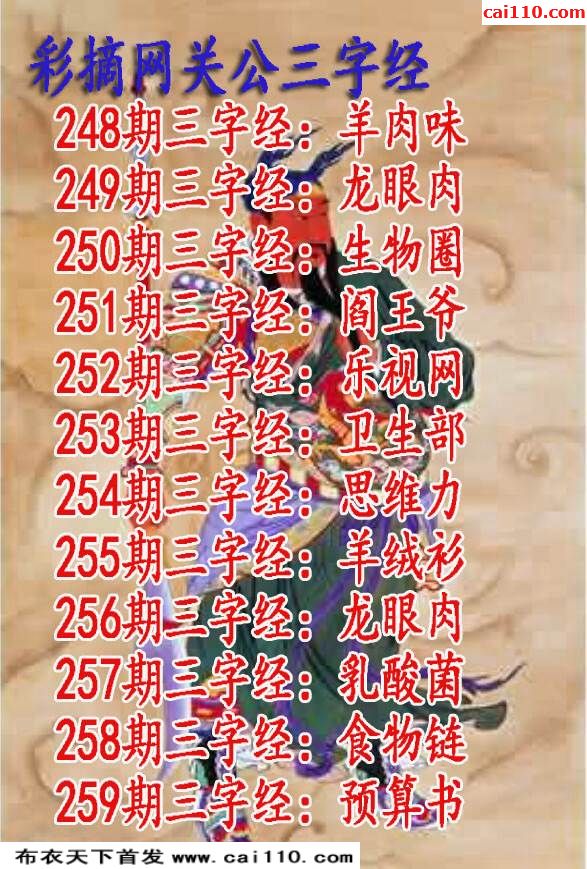 cai110.com
彩摘网关公三字经
248期三字经：羊肉味
249期三字经：龙眼肉
250期三字经：生物圈
251期三字经：阎王爷
252期三字经：乐视网
253期三字经：卫生部
254期三字经：思维力
255期三字经：羊绒衫
256期三字经：龙眼肉
257期三字经：乳酸菌
258期三字经：食物链
259期三字经：预算书
布衣天下首发 www.cai110.com